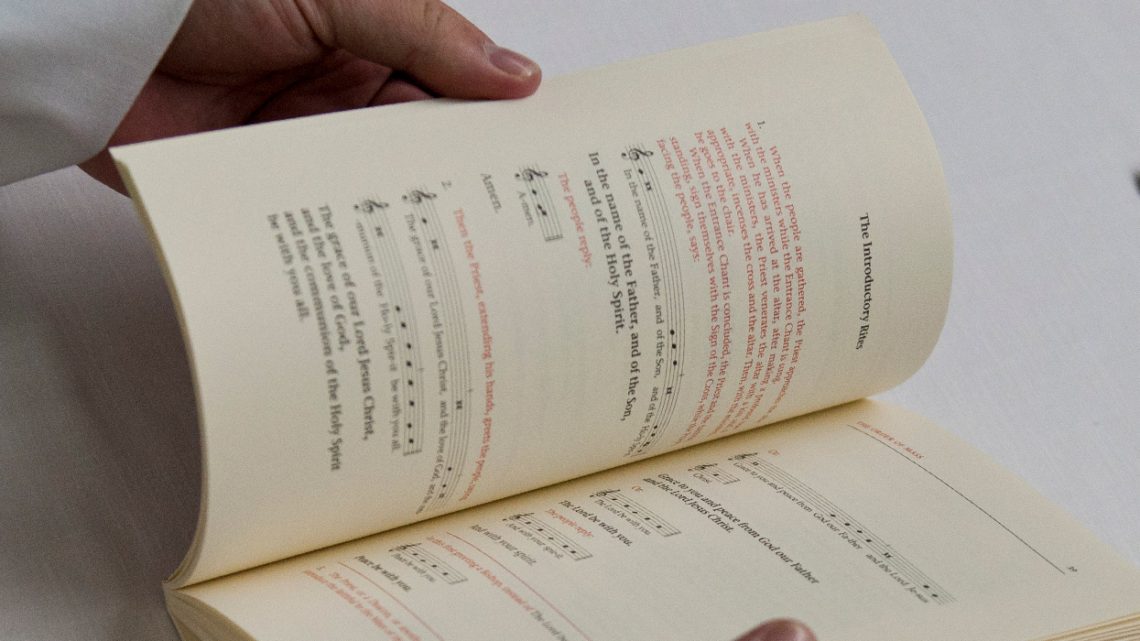 The Introductory Rites
1. When the people are gathered, the Priest approaches the
with the ministers while the Entrance Chant is sung.
When he has arrived at the altar, after making a
with the ministers, the Priest venerates the altar with a
appropriate, incenses the cross and the altar. Then, with the
he goes to the chair.
When the Entrance Chant is concluded, the Priest and the
standing, sign themselves with the Sign of the Cross, while the
facing the people, says:
In the name of the Father, and of the Son, and of the Ho-ly
In the name of the Father, and of the Son,
and of the Holy Spirit.
The people reply:
A-men.
Amen.
2. Then the Priest, extending his hands, greets the people, saying:
The grace of our Lord Jesus Christ, and the love of God, and the
-munion of the Ho-ly Spir-it be with you all.
The grace of our Lord Jesus Christ,
and the love of God,
and the communion of the Holy Spirit
be with you all.
THE ORDER OF MASS
Or:
Grace to you and peace from God our Fa-ther and the Lord Je-sus
Christ.
Grace to you and peace from God our Father
and the Lord Jesus Christ.
Or:
The Lord be with you.
The Lord be with you.
The people reply:
And with your spir-it.
And with your spirit.
In this first greeting a Bishop, instead of The Lord be
Peace be with you.
Peace be with you.
3. The Priest, or a Deacon, or another